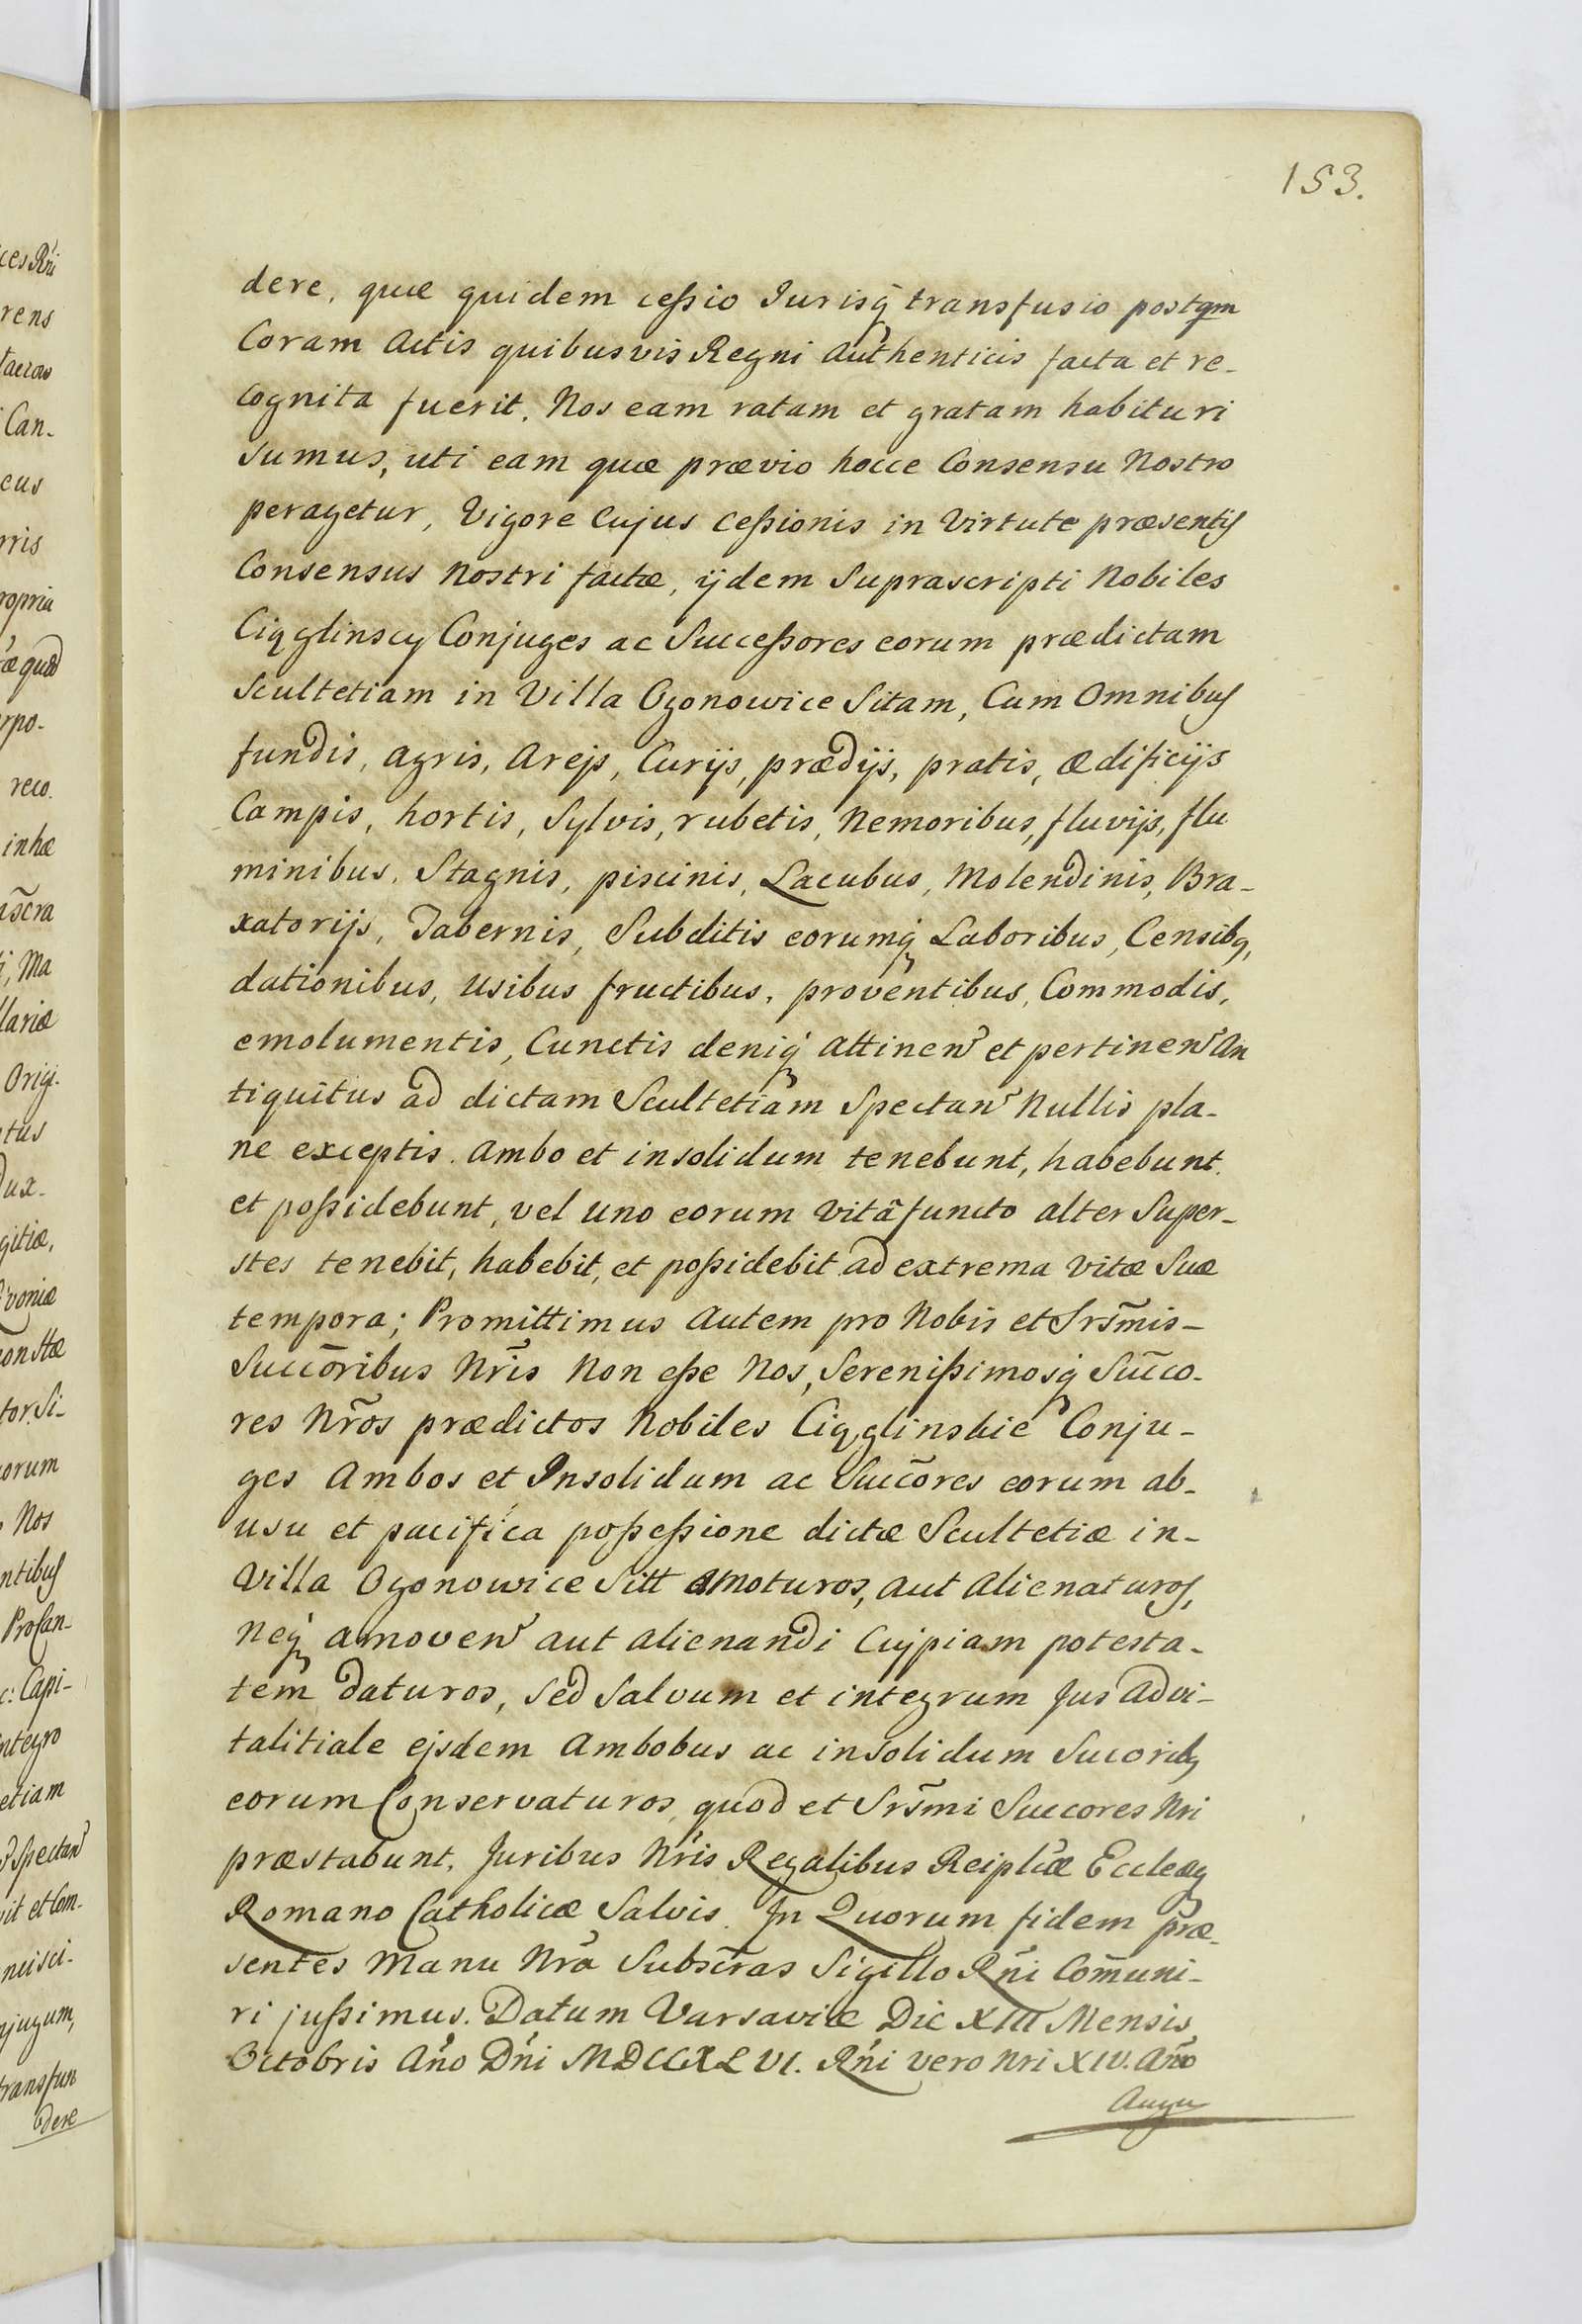 153.
dere, quæ quidem ceſsio Jurisq̃ transfusio postqm
Coram Actis quibusvis Regni Authenticis facta et re-
cognita fuerit. Nos eam ratam et gratam habituri
sumus, uti eam quæ prævio hocce Consensu Nostro
peragetur, Vigore Cujus Ceſsionis in Virtute præsentis
Consensus Nostri factæ, ijdem Suprascripti Nobiles
Ciągliński Conjuges ac Succeſsores eorum prædictam
Scultetiam in Villa Ogonowice Sitam, Cum Omnibus
fundis, agris, Arejs, Curijs, prædijs, pratis, ædificijs
Campis, hortis, Sylvis, rubetis, Nemoribus, fluvijs, flu
minibus, Stagnis, piscinis, Lacubus, Molendinis, Bra-
xatorijs, Tabernis, Subditis eorumq̃ Laboribus, Censibq,
dationibus, usibus fructibus, proventibus, Commodis,
emolumentis, Cunctis deniq̃ attinen̄ et pertinen̄ An
tiquitus ad dictam Scultetiam Spectan̄ Nullis pla-
ne exceptis. Ambo et insolidum tenebunt, habebunt
et poſsidebunt, vel uno eorum vitâ functo alter Super-
stes tenebit, habebit, et poſsidebit ad extrema vitæ Suæ
tempora; Promittimus autem pro Nobis et Srs̃mis-
Succõribus Nr̃is Non eſse Nos, Sereniſsimosq̃ Succ̃o-
res Nr̃os prædictos Nobiles Ciąglinskie Conju-
ges Ambos et Insolidum ac Succ̃ores eorum ab-
usu et pacifica poſseſsione dictæ Scultetiæ in-
Villa Ogonowice Sitt amoturos, aut Alienaturos,
Neq̃ amoven̄ aut alienandi Cujpiam potesta-
tem daturos, sed Salvum et integrum Jus Advi-
talitiale ejsdem Ambobus ac insolidum Sucoribq
eorum Conservaturos, quod et Srs̃mi Succores Nri
præstabunt. Juribus Nr̃is Regalibus Reiplicæ Eccleæq
Romano Catholicæ Salvis. In Quorum fidem præ-
sentes Manu Nr̃a Subsc̃ras Sigillo Rñi Com̃uni-
ri juſsimus. Datum Varsaviæ Die XIII Mensis
Octobris Año Dñi MDCCXLVI. Rñi vero Nri XIV. Año
Augu